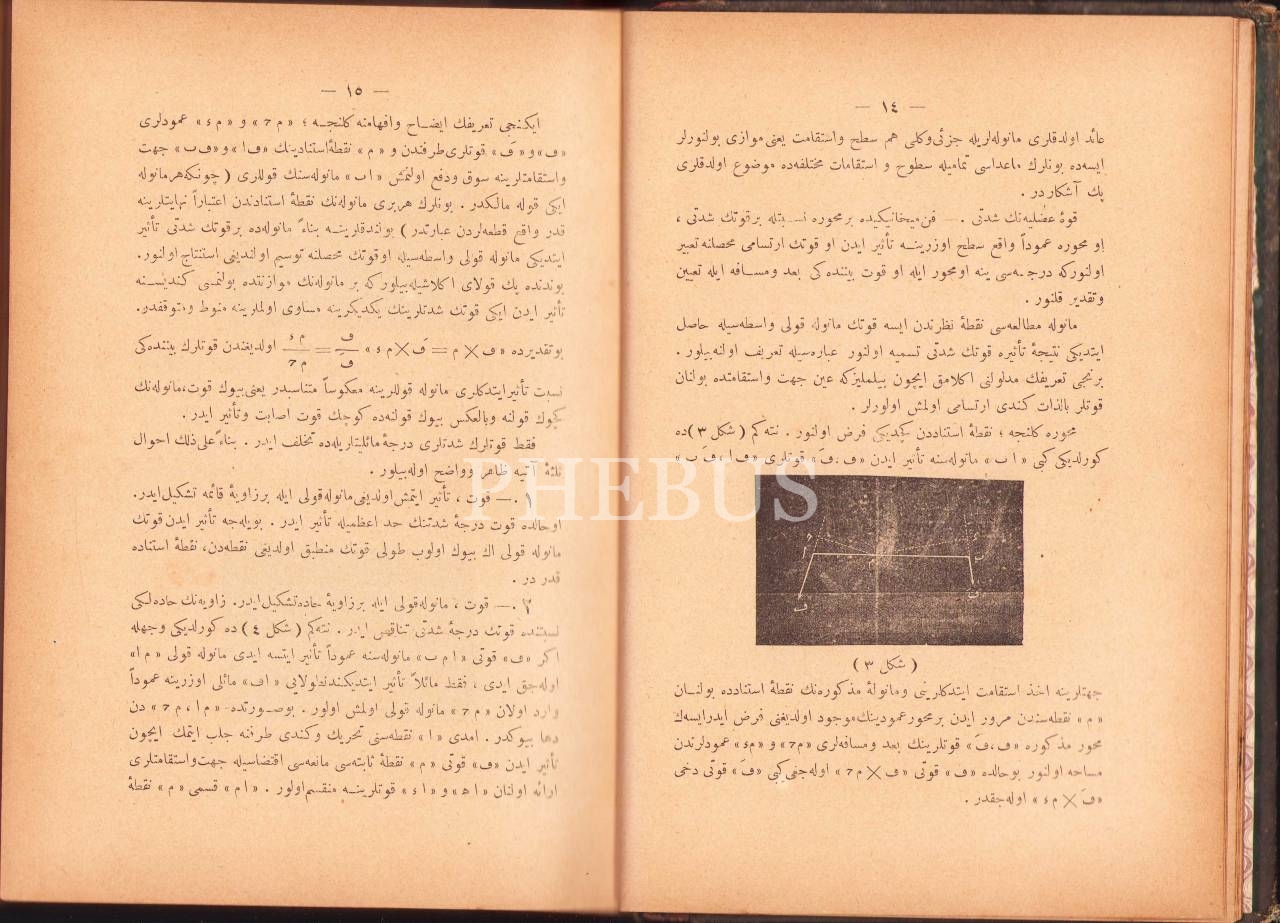 — ١٤ —
عائد اولدقلری مانوله‌لریله جزئی‌وکلی هم سطح واستقامت یعنی موازی بولنورلر
ایسه‌ده بونلرك ماعداسی تمامیله سطوح و استقامات مختلفه‌ده موضوع اولدقلری
پك آشکاردر .
قوهٔ عضلیه‌نك شدتی . — فن‌میخانیکیده برمحوره نسبتله برقوتك شدتی ،
او محوره عموداً واقع سطح اوزرینه تأثیر ایدن او قوتك ارتسامی محصلنه تعبیر
اولنورکه درجه‌سی ینه اومحور ایله او قوت بیننده‌کی بعد ومسافه ایله تعیین
وتقدیر قلنور .
مانوله مطالعه‌سی نقطهٔ نظرندن ایسه قوتك مانوله قولی واسطه‌سیله حاصل
ایتدیکی نتیجهٔ تأثیره قوتك شدتی تسمیه اولنور عباره‌سیله تعریف اولنه‌بیلور .
برنجی تعریفك مدلولنی اکلامق ایچون بیلملیزکه عین جهت واستقامتده بولنان
قوتلر بالذات کندی ارتسامی اولمش اولورلر .
محوره کلنجه ؛ نقطهٔ استناددن کچدیکی فرض اولنور . نته‌کم ( شکل ٣ )ده
کورلدیکی کبی « ا ب » مانوله‌سنه تأثیر ایدن «ف ، فَ» قوتلری « ف ا ، ف ب »
( شکل ٣ )
جهتلرینه اخذ استقامت ایتدکلرینی ومانولهٔ مذکوره‌نك نقطهٔ استنادده بولنان
« م » نقطه‌سندن مرور ایدن برمحورعمودینك‌موجود اولدیغنی فرض ایدرایسه‌ك
محور مذکوره «ف ، فَ» قوتلرینك بعد ومسافه‌لری «م٦» و «مء» عمودلرندن
مساحه اولنور بوحالده «ف» قوتی «ف × م٦» اوله‌جغی‌کبی «فَ» قوتی دخی
«فَ × مء» اوله‌جقدر .
— ١٥ —
ایکنجی تعریفك ایضاح وافهامنه کلنجه ؛ «م ٦» و «مء» عمودلری
«ف» و «فَ» قوتلری‌طرفندن و «م» نقطهٔ‌استنادینك «ف‌ا» و «ف‌ب» جهت
واستقامتلرینه سوق ودفع اولنمش «اب» مانوله‌سنك قوللری ( چونکه‌هرمانوله
ایکی قوله مالکدر . بونلرك هربری مانوله‌نك نقطهٔ استنادندن اعتباراً نهایتلرینه
قدر واقع قطعه‌لردن عبارتدر ) بولندقلرینه بناءً مانوله‌ده برقوتك شدتی تأثیر
ایتدیکی مانوله قولی واسطه‌سیله اوقوتك محصلنه توسیم اولندیغی استنتاج اولنور.
بوندنده پك قولای اکلاشیله‌بیلورکه بر مانوله‌نك موازنتده بولنمسی کندیسنه
تأثیر ایدن ایکی قوتك شدتلرینك یکدیکرینه مساوی اولملرینه منوط ومتوقفدر.
بوتقدیرده «ف × م = فَ × مء» ف/فَ = مء/م٦ اولدیغندن قوتلرك بیننده‌کی
نسبت تأثیرایتدکلری مانوله قوللرینه معکوساً متناسبدر یعنی‌بیوك قوت،مانوله‌نك
کچوك قولنه وبالعکس بیوك قولنه‌ده کوچك قوت اصابت وتأثیر ایدر .
فقط قوتلرك شدتلری درجهٔ مائلیتلریله‌ده تخلف ایدر . بناءً علی‌ذلك احوال
ثلثهٔ آتیه ظاهر وواضح اوله‌بیلور .
١ً . — قوت ، تأثیر ایتمش اولدیغی‌مانوله‌قولی ایله برزاویهٔ قائمه تشکیل‌ایدر.
اوحالده قوت درجهٔ شدتنك حد اعظمیله تأثیر ایدر . بویله‌جه تأثیر ایدن قوتك
مانوله قولی اك بیوك اولوب طولی قوتك منطبق اولدیغی نقطه‌دن، نقطهٔ استناده
قدر در .
٢ً . — قوت ، مانوله‌قولی ایله برزاویهٔ حاده‌تشکیل‌ایدر. زاویه‌نك حاده‌لکی
نسبتنده قوتك درجهٔ شدتی تناقص ایدر . نته‌کم ( شکل ٤ ) ده کورلدیکی وجهله
اکر «ف» قوتی « ا م ب » مانوله‌سنه عموداً تأثیر ایتسه ایدی مانوله قولی « م ا »
اوله‌جق ایدی ، فقط مائلاً تأثیر ایتدیکندن‌طولایی « اف » مائلی اوزرینه عموداً
وارد اولان « م ٦ » مانوله قولی اولمش اولور . بوصورتده « م ا ، م ٦ » دن
دها بیوکدر . امدی « ا » نقطه‌سنی تحریك وکندی طرفنه جلب ایتمك ایچون
تأثیر ایدن «ف» قوتی « م » نقطهٔ ثابته‌سی مانعه‌سی اقتضاسیله جهت‌واستقامتلری
ارائه اولنان « اھ » و « اء » قوتلرینه منقسم‌اولور . « ام » قسمی « م » نقطهٔ
PHEBUS